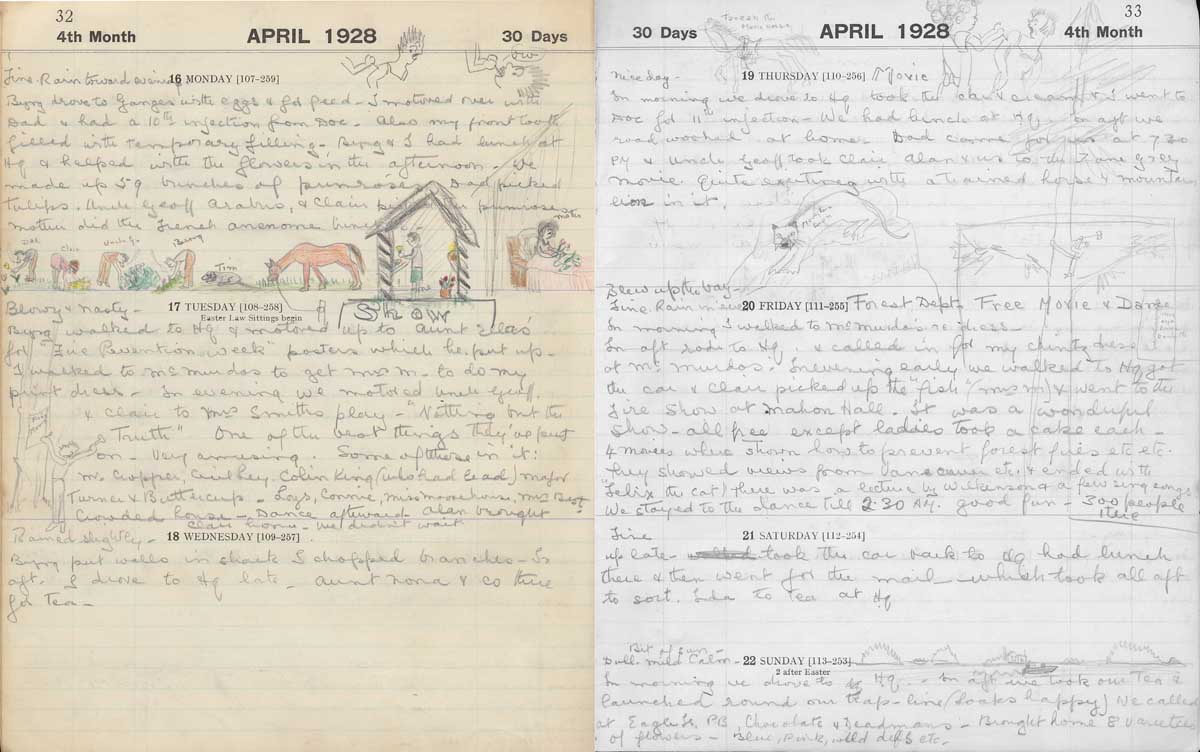 32
4th Month
APRIL 1928
30 Days
Ow
Fine. Rain toward evening
16 MONDAY [107-259]
Byng drove to Ganges with eggs & for feed - I motored over with
Dad & had a 10th injection from Doc. Also my front tooth
filled with temporary filling. Byng & I had lunch at
Hq & helped with the flowers in the afternoon. We
made up 59 bunches of primroses. Dad picked
tulips. Uncle Geoff Arabis, & Clair primroses
mother did the French anenome
Dad
Clair
Uncle G.
Byng
Tim
me
mother
Blowy & nasty -
17 TUESDAY [108-258]
Easter Law Sittings begin
SHOW
Byng walked to Hq & motored up to Aunt Ella's
for "Fire Prevention week" posters which he put up -
I walked to McMurdos to get Mrs M. to do my
print dress - In evening we motored Uncle Geoff
& Clair to Mrs Smiths play - "Nothing but the
Truth" One of the best things they've put
on - Very amusing. Some of those in it:
Mr Cropper, Colin King (who had lead) Major
Turner & Buttercup - Loys, Connie, Miss Moorehouse, Mrs Best
Crowded house - Dance afterward Alan brought
Clair home - we didn't wait
Rained slightly -
18 WEDNESDAY [109-257]
Byng put walls in shack I chopped branches - In
aft. I drove to Hq late - Aunt Nora & co there
for Tea -
30 Days
APRIL 1928
33
4th Month
Nice day -
19 THURSDAY [110-256] Movie
In morning we drove to Hq took the car & cream & I went to
Doc for 11th injection - We had lunch at Hq. In aft we
road worked at home. Dad came for us at 7 30
PM & Uncle Geoff took Clair Alan & us to the Zane Grey
movie. Quite exciting with a trained horse & mountain
lion in it.
Blew up the bay -
Fine. Rain
20 FRIDAY [111-255] Forest Dept. Free Movie & Dance
In morning I walked to McMurdo's re dress -
In aft rode to Hq. & called in for my chintz dress
at McMurdos. In evening early we walked to Hq got
the car & Clair picked up the "fish" (Mrs M) & went to the
Fire Show at Mahon Hall. It was a wonderful
show - all free except ladies took a cake each -
4 movies where shown how to prevent forest fires etc etc.
They showed views from Vancouver etc. & ended with
"Felix the cat) there was a lecture by Wilkinson & a few sing songs
We stayed to the dance till 2 30 AM. good fun - 300 people
there
Fine
21 SATURDAY [112-254]
up late - took the car back to Hq had lunch
there & then went for the mail - which took all aft
to sort. Ida to tea at Hq
Bit of sun -
Dull. mild Calm -
22 SUNDAY [113-253]
2 after Easter
In morning we drove to Hq - In aft we took our Tea &
launched round our trap-line (looks happy) We called
at Eagle Is, PB, Chocolate & Deadmans - Brought home 8 varieties
of flowers - Blue, pink, wild daffs etc.